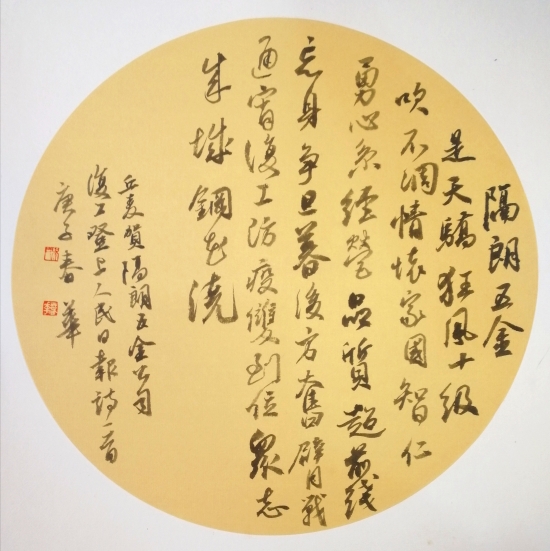 隔朗五金
是天驕狂風十級
吹不凋情懷家國智仁
勇心系經營品質超前綫
忘身争旦暮後方奮臂戰
通宵復工防疫雙到位衆志
成城鋼花澆
丘麦賀隔朗五金公司
復工登上人民日報詩一首
庚子春華